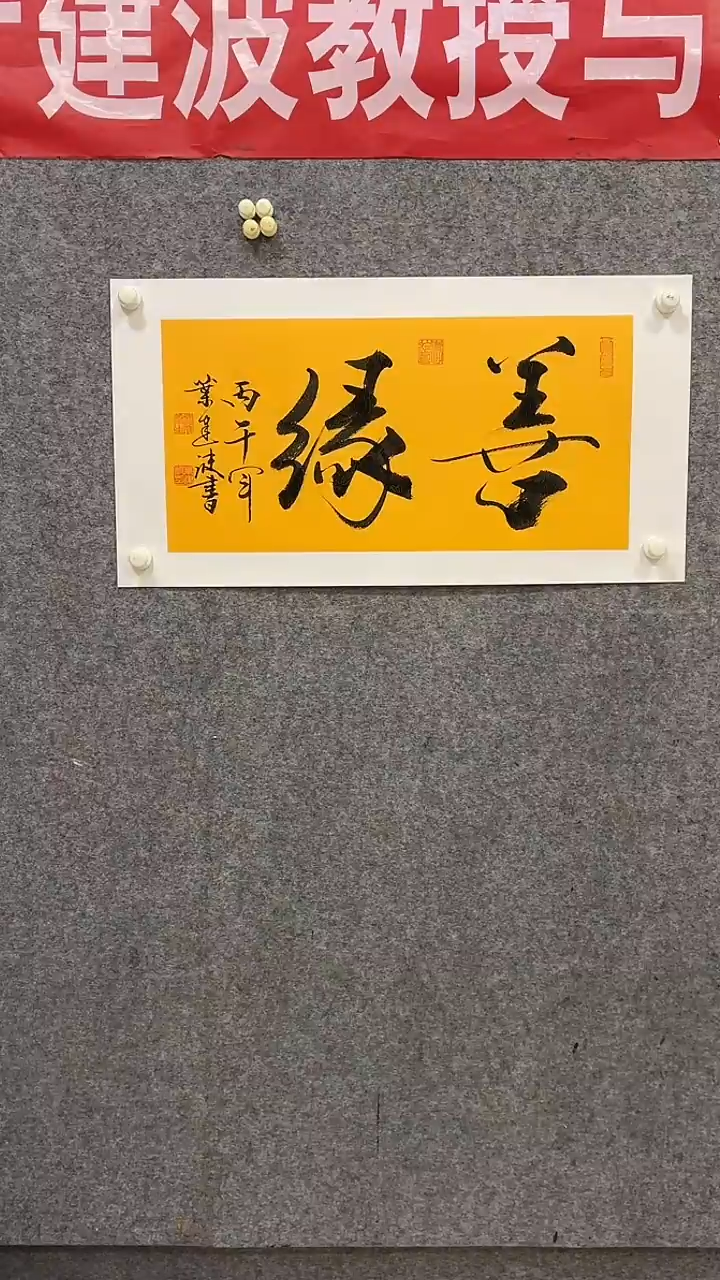 建波教授与
善缘
丙午年
葉建波書